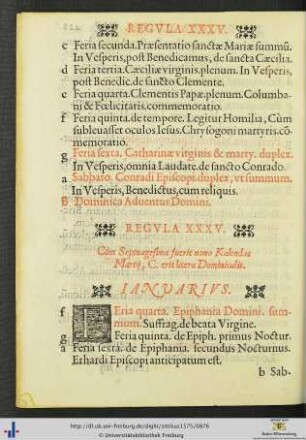 REGVLA XXXV.
c Feria secunda. Præsentatio sanctæ Mariæ summū.
In Vesperis, post Benedicamus, de sancta Cæcilia.
d Feria tertia. Cæciliæ virginis. plenum. In Vesperis,
post Benedic. de sancto Clemente.
e Feria quarta. Clementis Papæ. plenum. Columba-
ni & Fœlicitatis. commemoratio.
f Feria quinta. de tempore. Legitur Homilia, Cùm
subleuasset oculos Iesus. Chrysogoni martyris. cō-
memoratio.
g Feria sexta. Catharinæ virginis & marty. duplex.
In Vesperis, omnia Laudate. de sancto Conrado.
a Sabbato. Conradi Episcopi. duplex, vt summum.
In Vesperis, Benedictus, cum reliquis.
B Dominica Aduentus Domini.
REGVLA XXXV.
Cùm Septuagesima fuerit nono Kalendas
Martÿ, C. erit litera Dominicalis.
IANVARIVS.
f FEria quarta. Epiphania Domini. sum-
mum. Suffrag. de beata Virgine.
g Feria quinta. de Epiph. primus Noctur.
a Feria sexta. de Epiphania. secundus Nocturnus.
Erhardi Episcopi anticipatum est.
b Sab-
http://dl.ub.uni-freiburg.de/diglit/ritibus1575/0876
© Universitätsbibliothek Freiburg
Baden-Württemberg